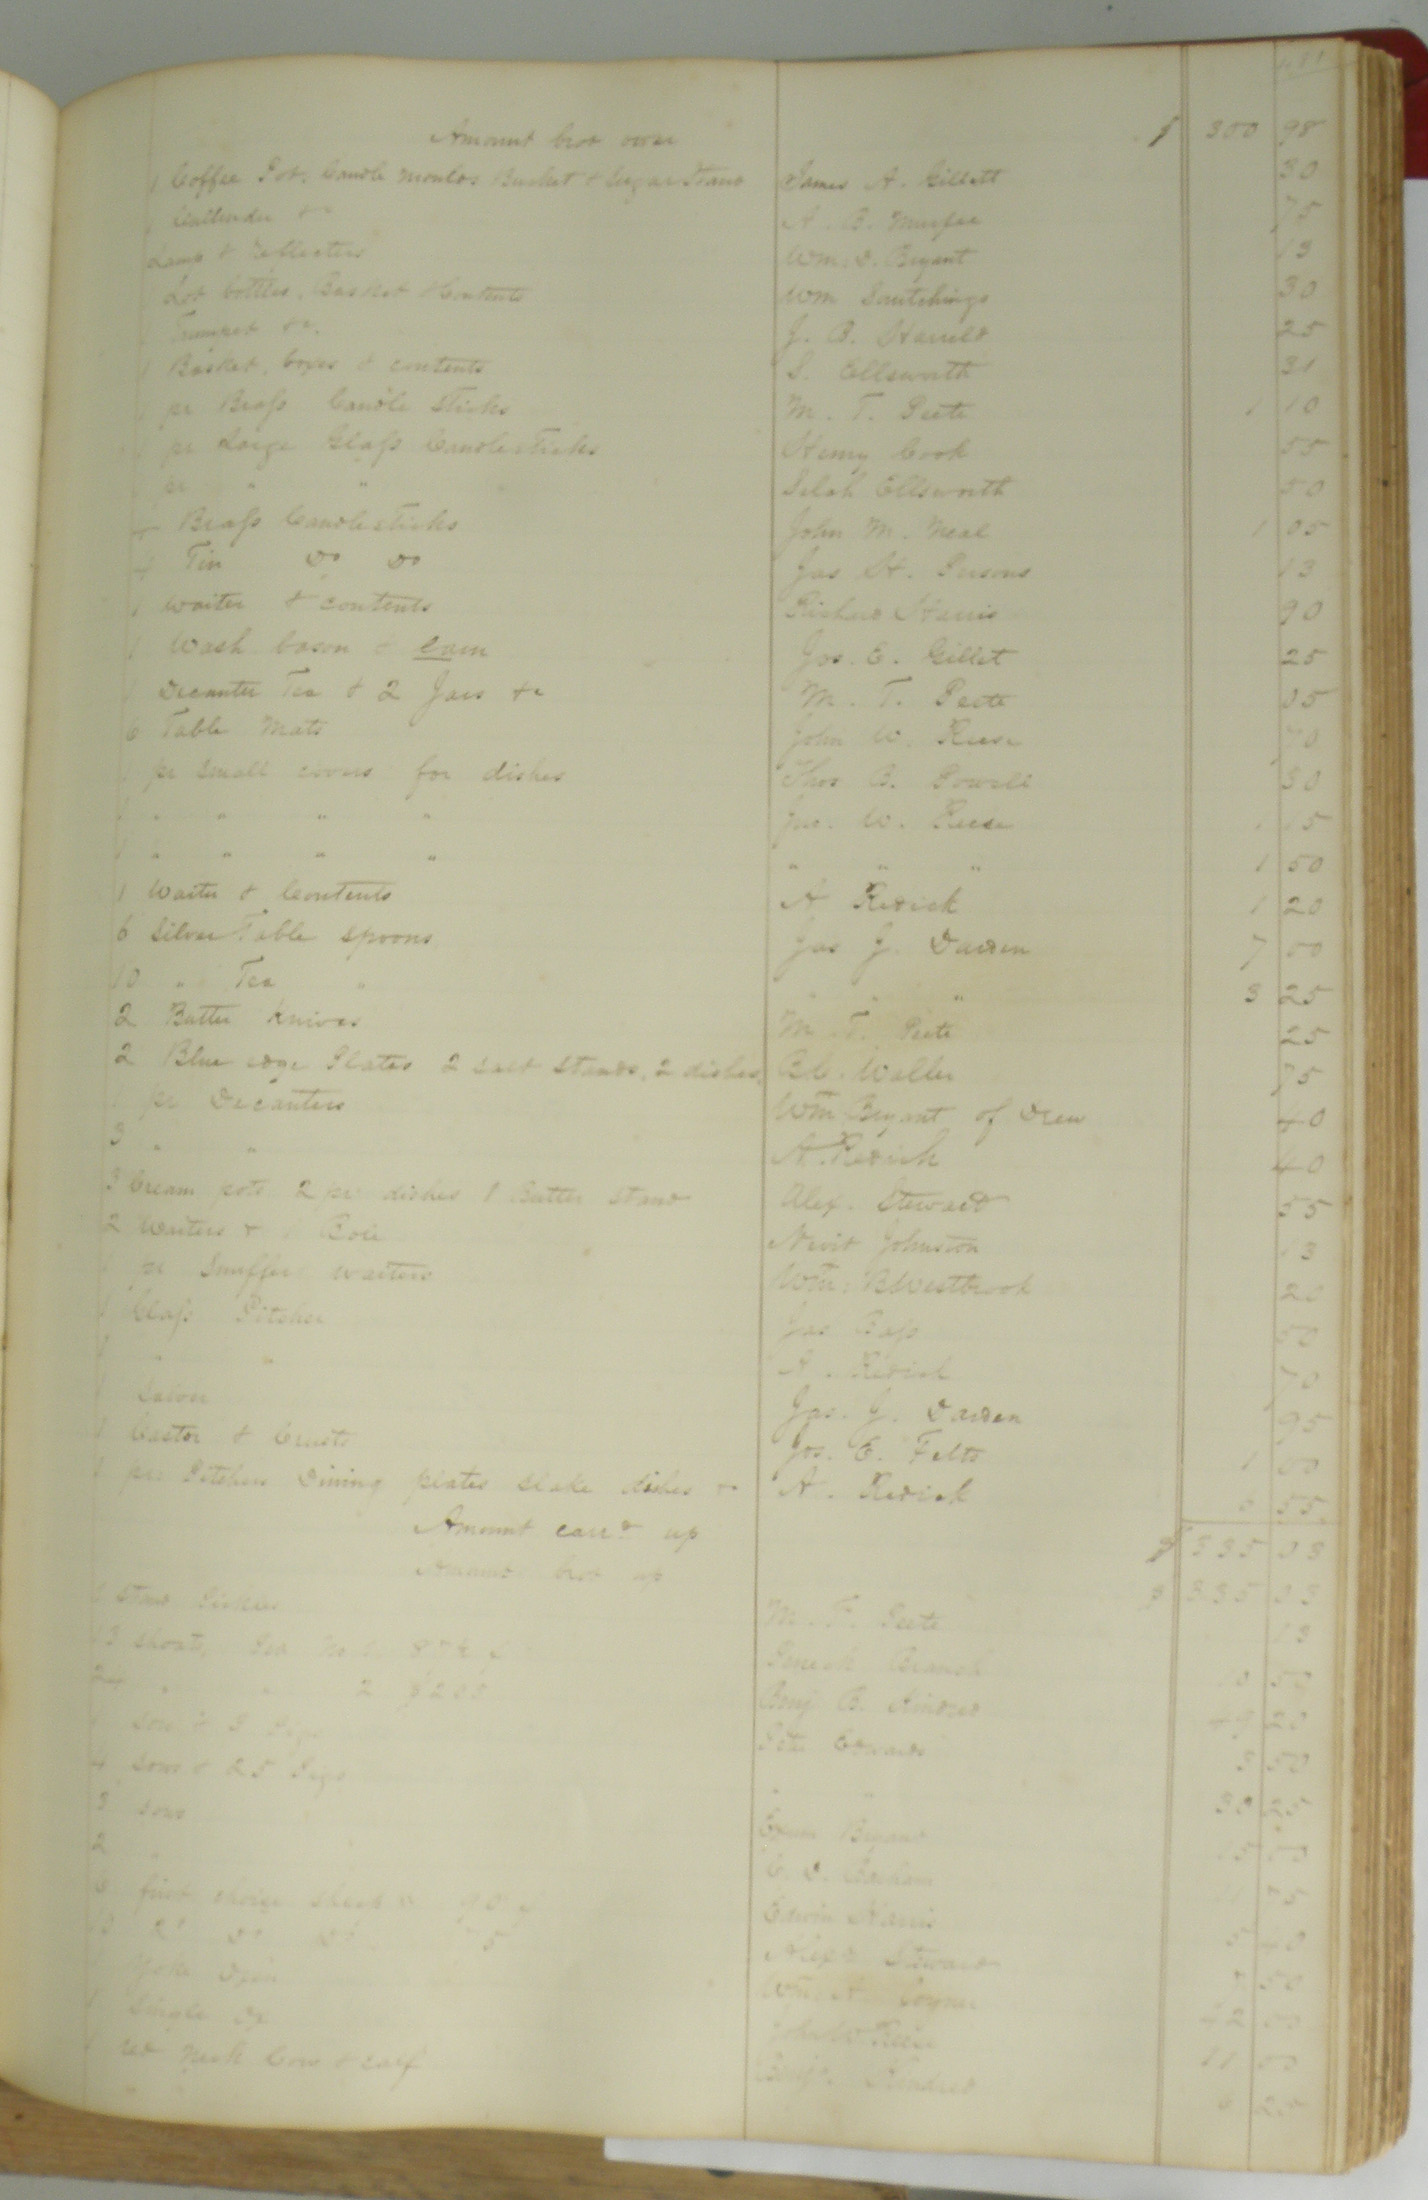 481
Amount brot over $ 300 98
1 Coffee Pot, Candle moulds Bucket & Sugar Stand James A. Gillett 30
1 Cullender &c A. B. Murfee 75
Lamp & Reflectors Wm. D. Bryant 13
Lot bottles, Basket & Contents Wm 30
1 Trumpet &c. J. B. Harreld 25
1 Basket, boxes & contents S. Ellsworth 31
1 pr Brass Candle Sticks M. T. Peete 1 10
1 pr Large Glass Candlesticks Henry Cook 55
1 pr " " Selah Ellsworth 50
4 Brass Candlesticks John M. Neal 1 05
4 Tin Do Do Jas H. Persons 13
1 Waiter & contents Richard Harris 90
1 Wash bason & Jos. E. Gillet 25
1 Decanter Tea & 2 Jars &c M. T. Peete 05
6 Table Mats John W. Reese 70
1 pr small covers for dishes Thos B. Powell 30
1 " " " " Jno. W. Reese 1 15
1 " " " " " " " 1 50
1 Waiter & Contents A Redick 1 20
6 Silver Table spoons Jas G. Darden 7 00
10 " Tea " " " " 3 25
2 Butter Knives M. T. Peete 25
2 Blue edge Plates 2 salt stands, 2 dishes, B.C. Waller 75
1 pr Decanters Wm Bryant of Drew 40
3 " " A. Redick 40
3 Cream pots 2 pr dishes 1 Butter stand Alex. Steward 55
2 Waiters & 1 Bole Nevit Johnston 13
1 pr Snuffer waiters Wm. B Westbrook 20
1 Glass Pitcher Jas Bass 50
1 " " A. Redick 70
1 Jas. G. Darden 95
1 Castor & Cruets Jos. E. Felts 1 00
1 pr Pitchers Dining plates dishes &c A. Redick 6 55
Amount card up $ 335 03
Amount brot up $ 335 03
1 Stand Pickles M. T. Peete 13
13 shoats, Branch 10 50
24 " " 2 $2 05 Benj B. Kindred 49 20
1 sow & 3 Pigs Peter Edwards 3 50
4 sows & 25 Pigs " " 30 25
3 sows Bryant 15 00
2 " C. D. Barham 11 75
6 first choice sheep @ 90 c Edwin Harris 5 40
10 2d do Do 75 Alexr Steward 7 50
1 Yoke Oxen Wm A. 42 00
1 Single Ox John W Reese 11 00
1 red Cow & calf Benj. Kindred